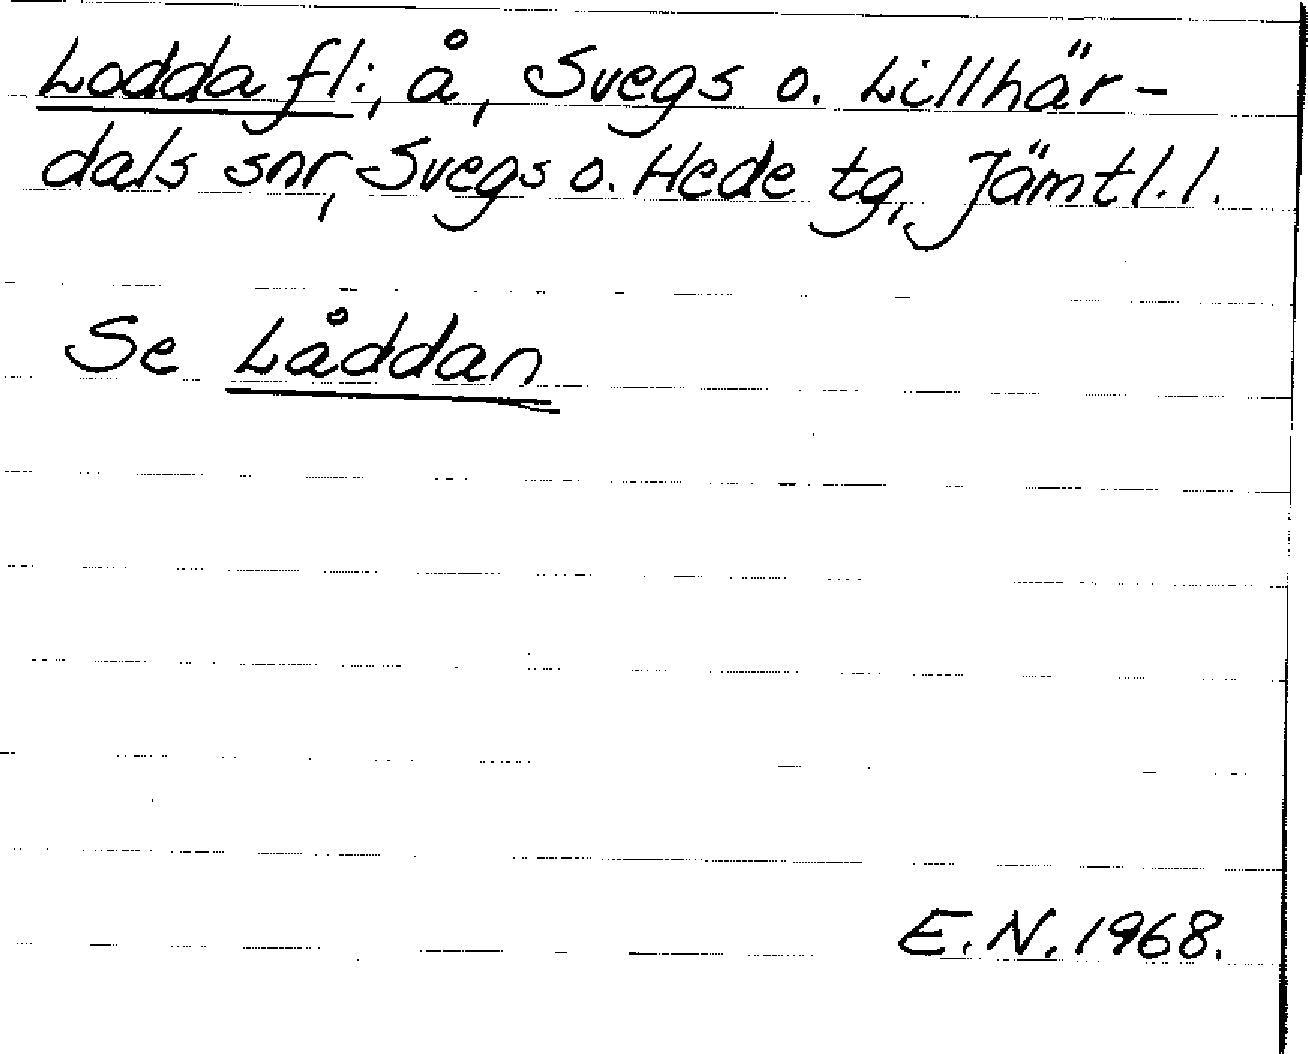 Lodda fl:, å, Svegs o. Lillhär-
dals snr, Svegs o. Hede tg, Jämtl. l.
Se Låddan
E.N. 1968.